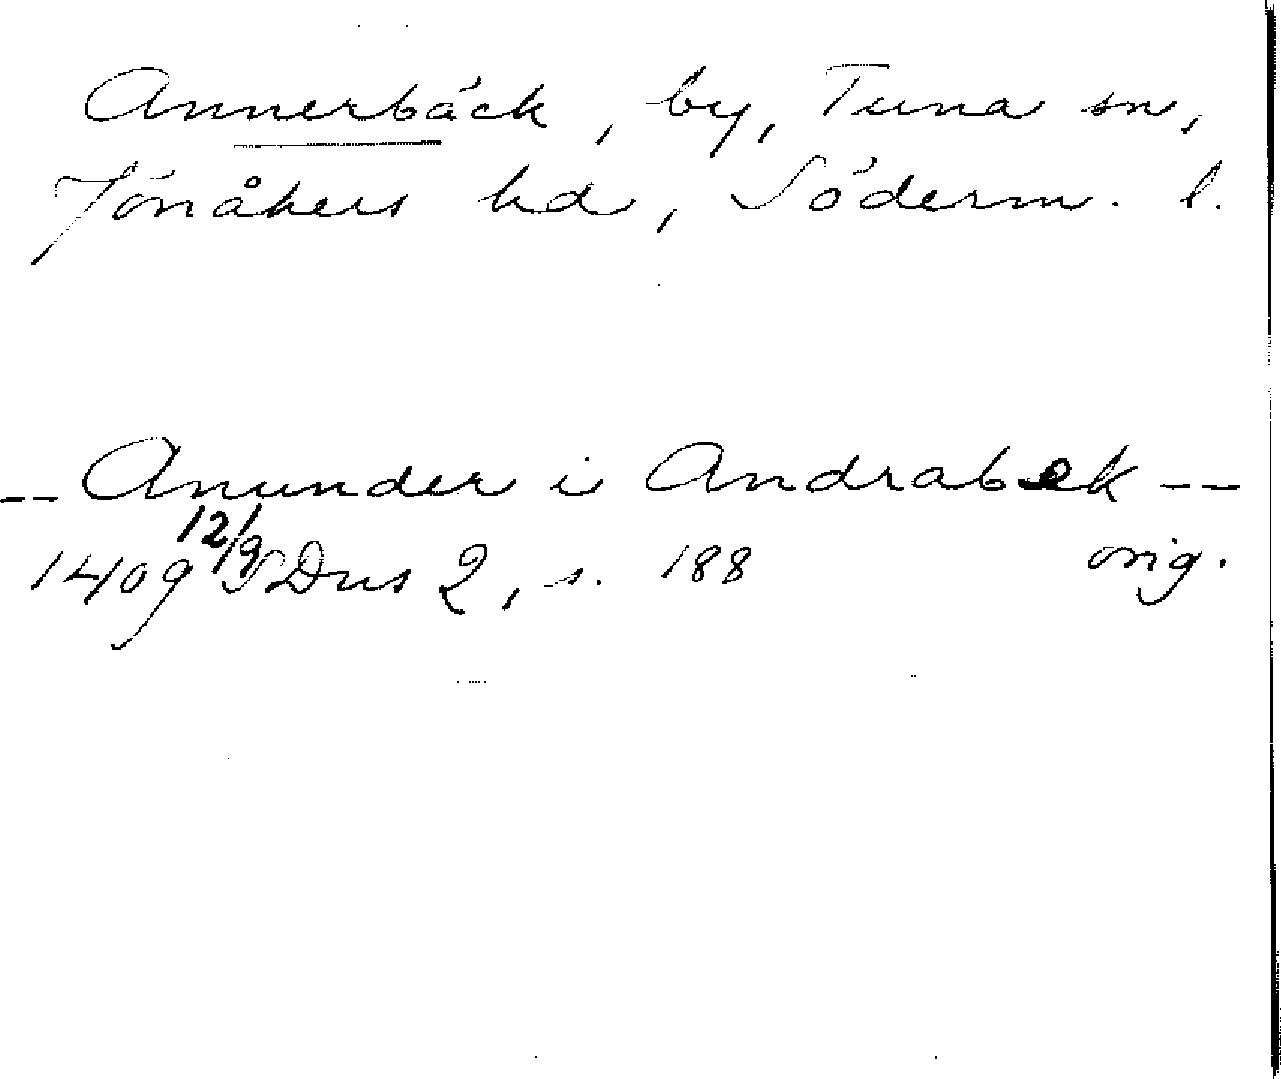 Annerbäck, by, Tuna sn,
Jönåkers hd, Söderm. l.
-- Anunder i Andrabek --
1409 12/9 SDns 2, s. 188 orig.